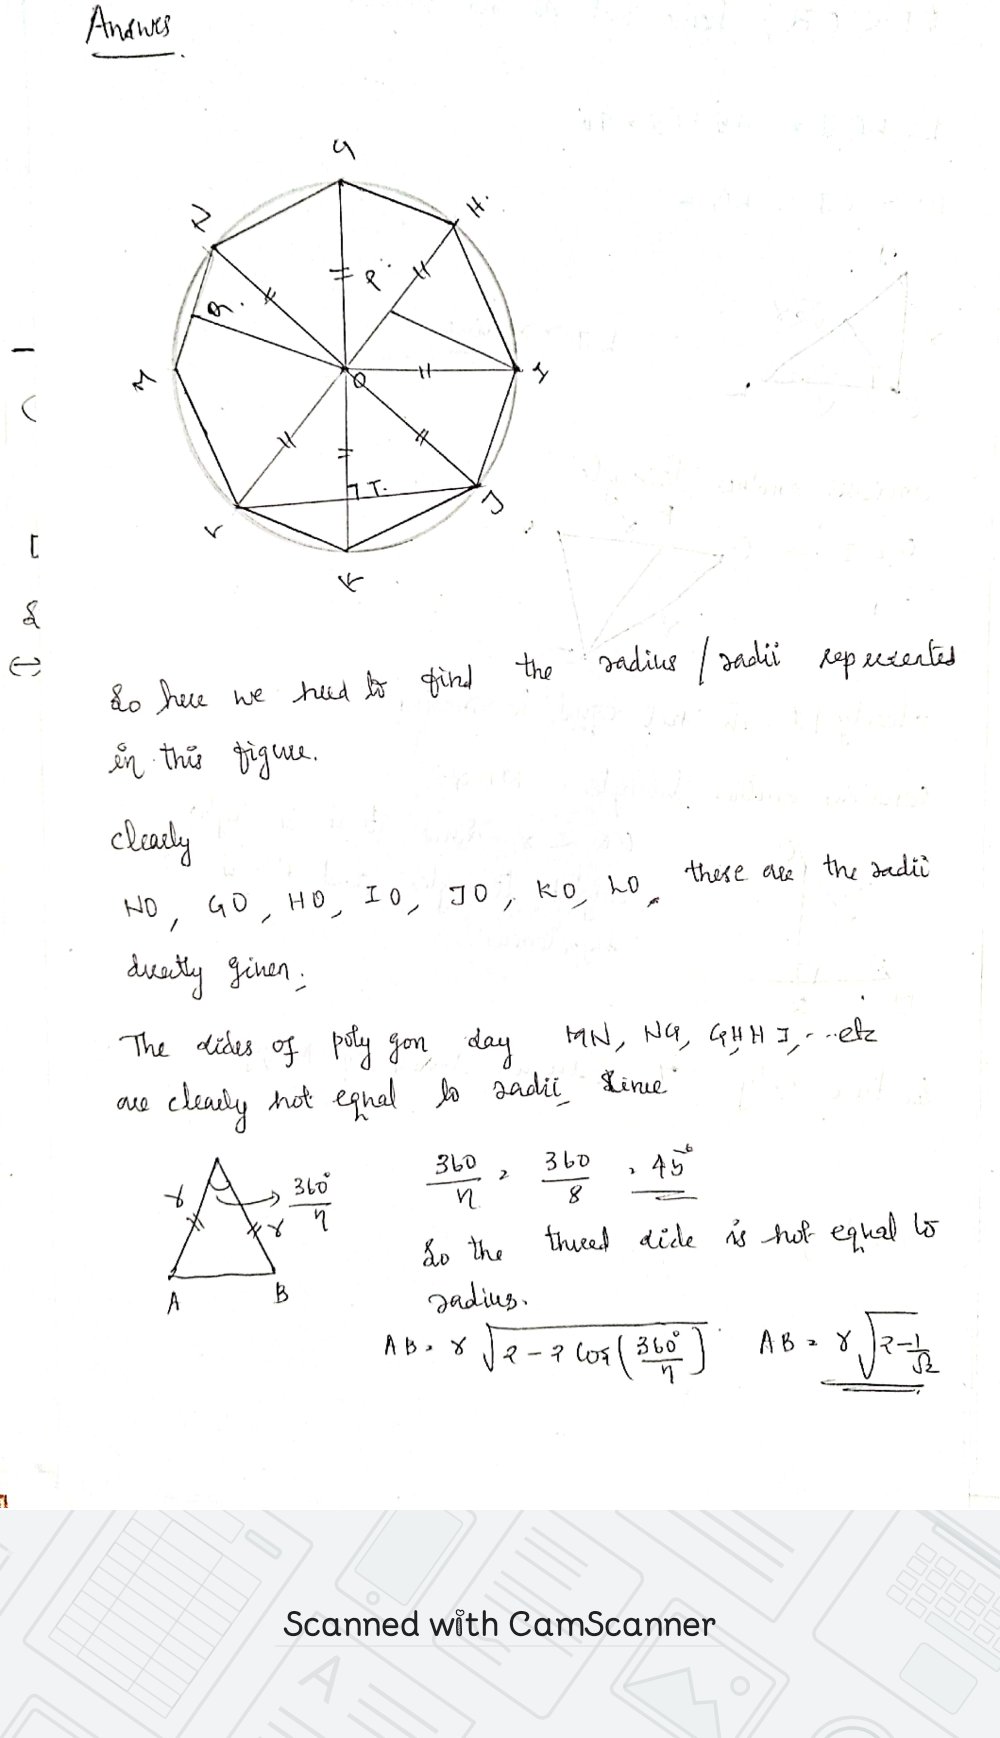 Answer
G
N
H.
P.
Q.
M
O
I
T.
L
J
K
So here we need to find the radius / radii represented
in this figure.
clearly
NO, GO, HO, IO, JO, KO, LO, these are the radii
directly given.
The sides of polygon say MN, NG, GH, HI, ... etc
are clearly not equal to radii since
r r 360°/n
A B
360/n = 360/8 = 45°
So the third side is not equal to
radius.
AB = r √(2 - 2 cos(360°/n)) AB = r √(2 - 1/√2)
Scanned with CamScanner